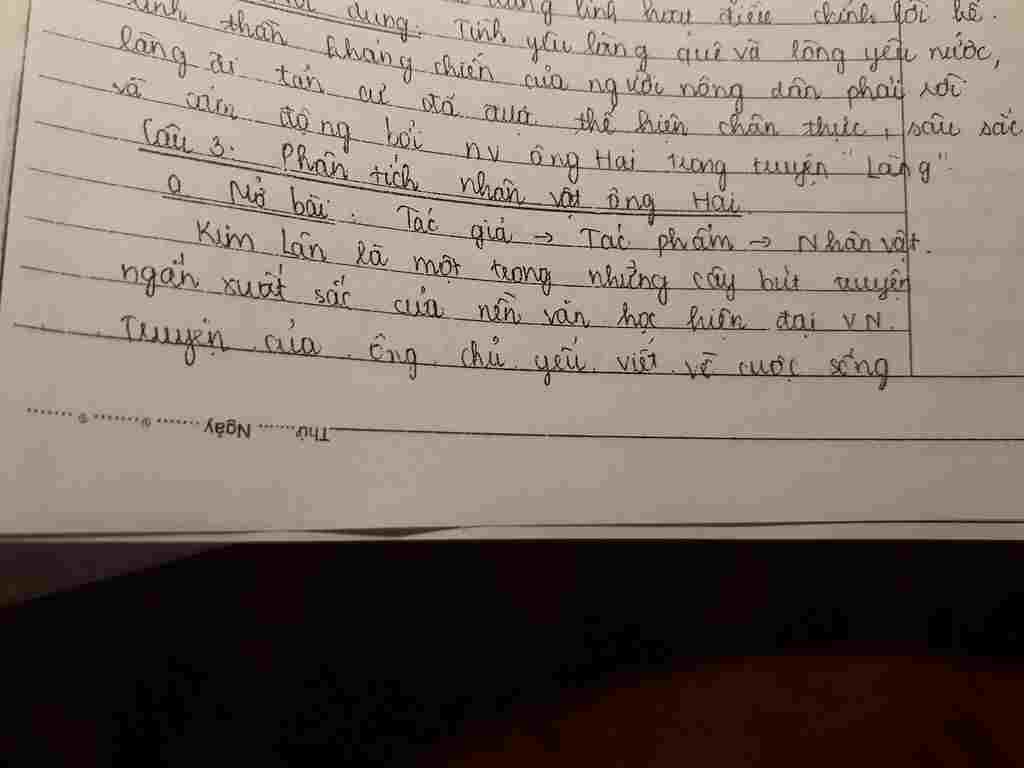 dung. Tình yêu làng quê và lòng yêu nước,
thần kháng chiến của người nông dân phải rời
làng đi tản cư đã được thể hiện chân thực, sâu sắc
và cảm động bởi nv ông Hai trong truyện "Làng"
Câu 3. Phân tích nhân vật ông Hai
a Mở bài. Tác giả → Tác phẩm → Nhân vật.
Kim Lân là một trong những cây bút truyện
ngắn xuất sắc của nền văn học hiện đại VN.
Truyện của ông chủ yếu viết về cuộc sống
Thứ Ngày